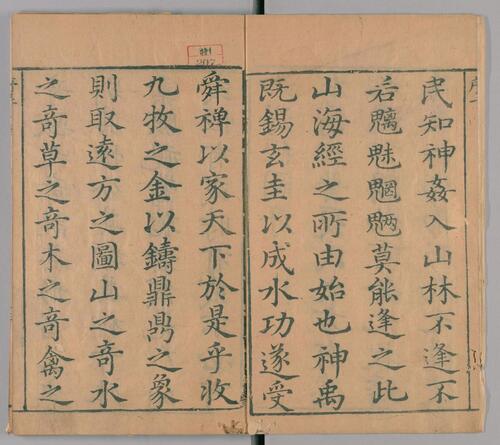 民知神姦入山林不逢不
若魑魅魍魎莫能逢之此
山海經之所由始也神禹
既錫玄圭以成水功遂受
舜禪以家天下於是乎收
九牧之金以鑄鼎鼎之象
則取遠方之圖山之竒水
之竒草之竒木之竒禽之
207